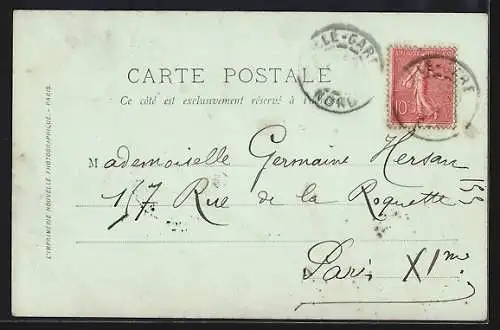 LLE-GARE
NORD
LLE-GARE
10
CARTE POSTALE
Ce côté est exclusivement réservé à l'
Mademoiselle Germaine Hersan
157 Rue de la Roquette
Paris XIme
L'IMPRIMERIE NOUVELLE PHOTOGRAPHIQUE - PARIS.